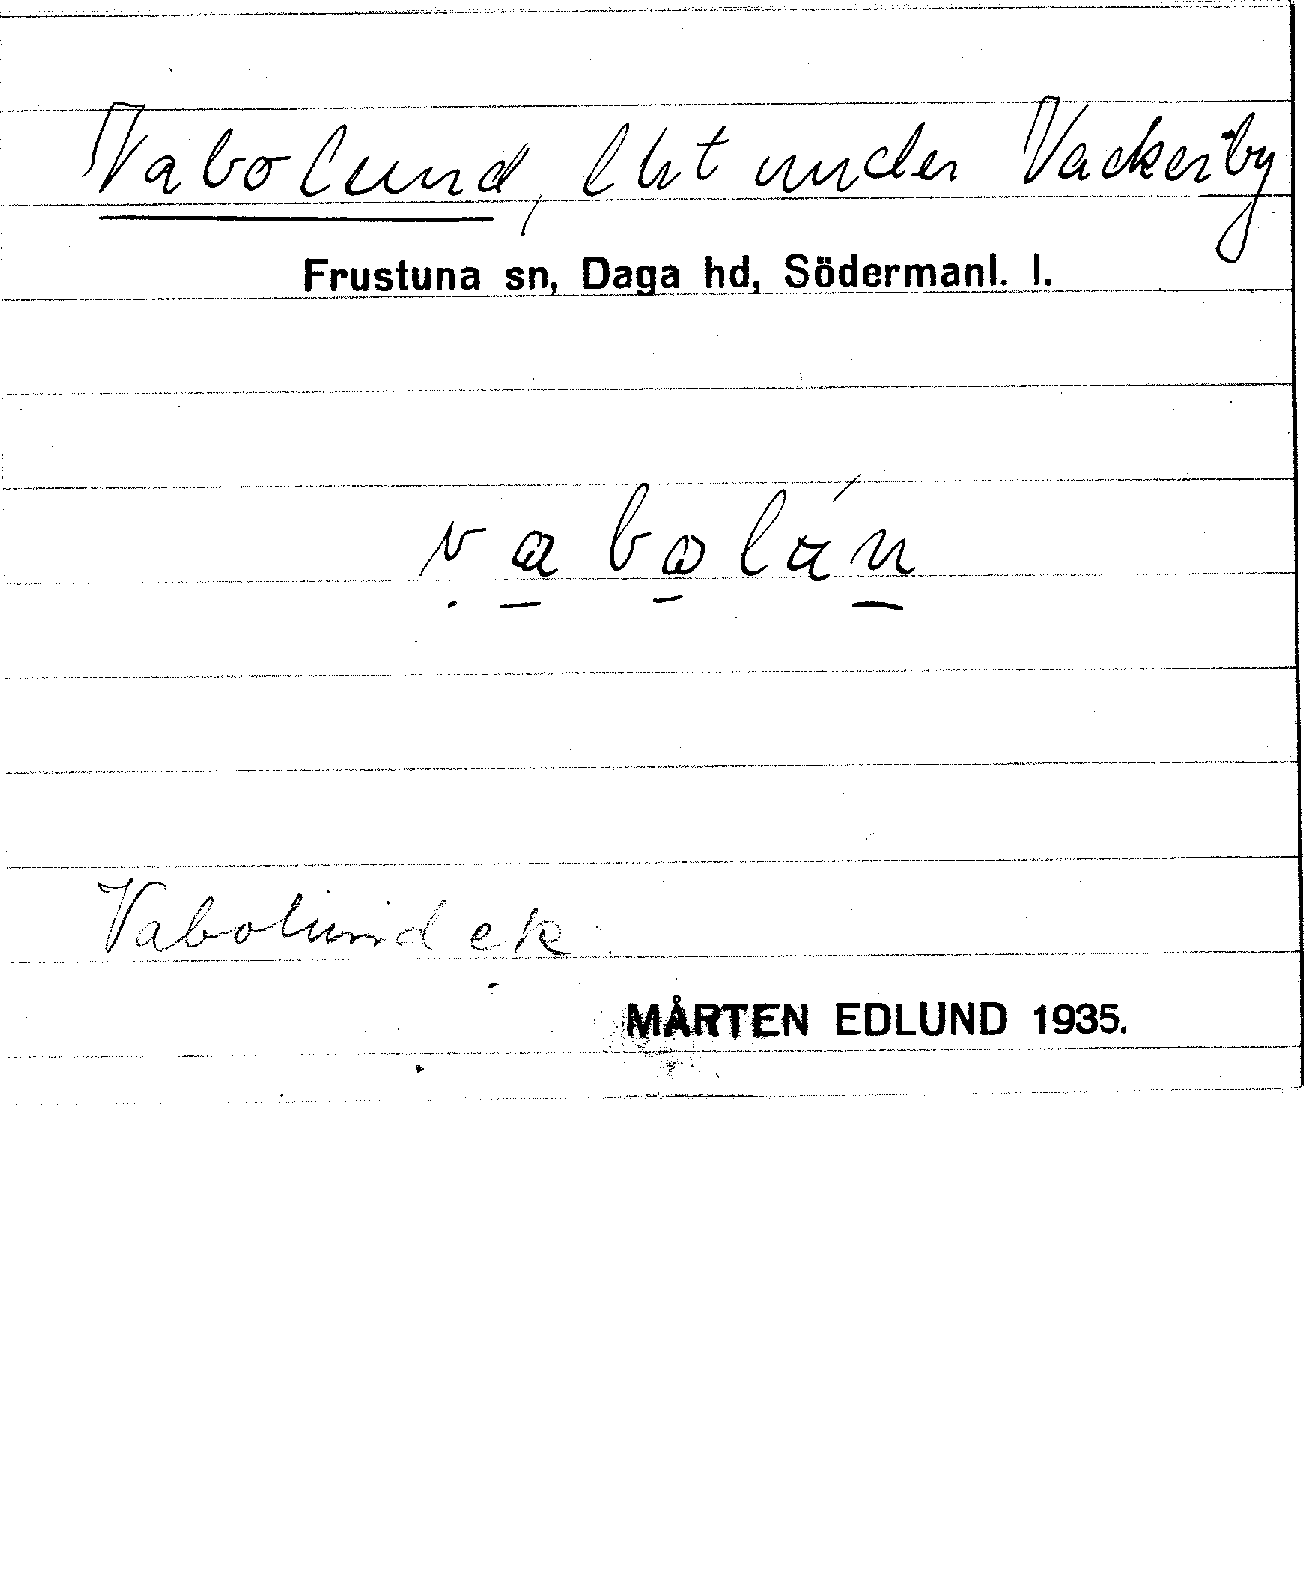 Vabolund, lht under Vackerby
Frustuna sn, Daga hd, Södermanl. l.
vabolán
Vabolund ek
MÅRTEN EDLUND 1935.